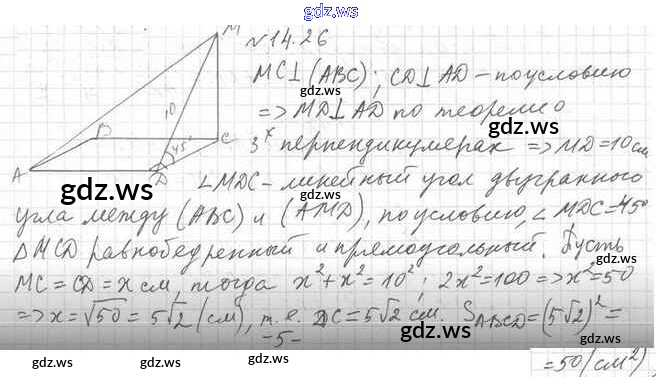 gdz.ru
M
№14.26
gdz.ru
MC⊥(ABC); CD⊥AD - по условию
gdz.ru
=> MD⊥AD по теореме о
10
3ˣ перпендикулярах => MD=10 см
B
C
45°
A
D
gdz.ru
∠MDC - линейный угол двугранного
угла между (ABC) и (AMD), по условию, ∠MDC=45°
gdz.ru
ΔMCD равнобедренный и прямоугольный. Пусть
MC=CD=x см, тогда x²+x²=10²; 2x²=100 => x²=50
=> x=√50=5√2 (см), т.е. DC=5√2 см. S_ABCD=(5√2)²=
gdz.ru
-5-
=50 (см²)
gdz.ru gdz.ru gdz.ru